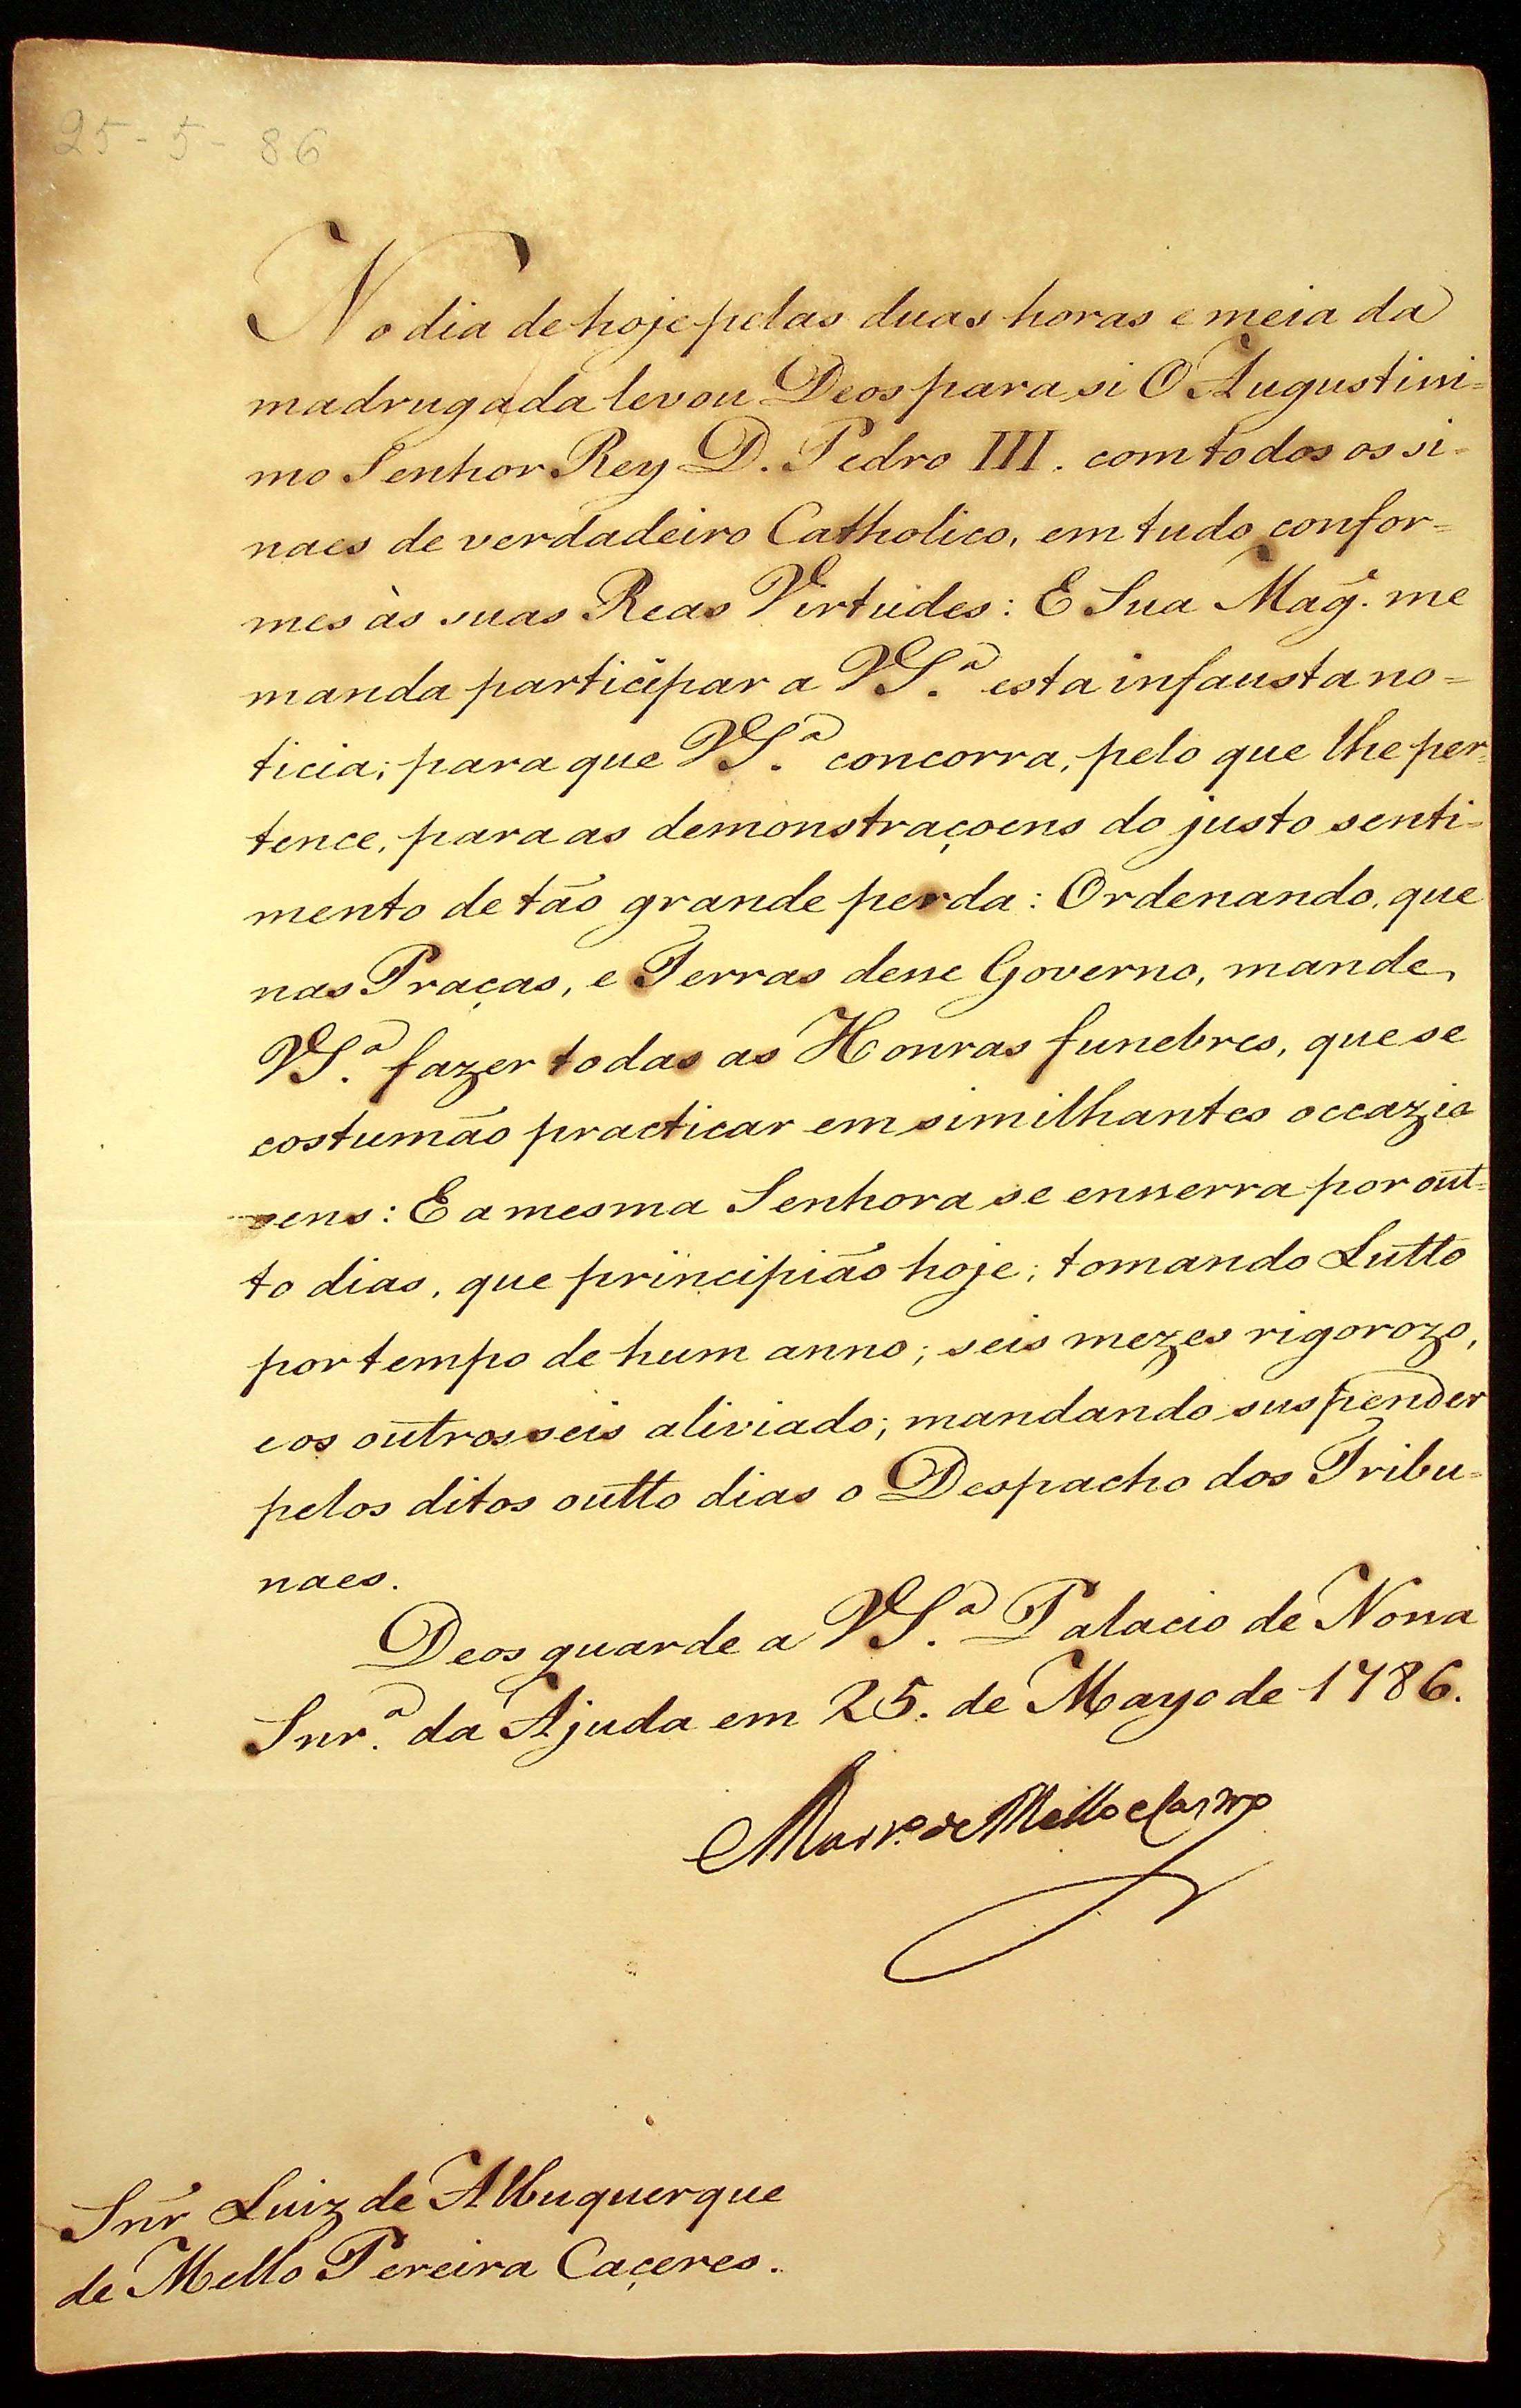 25-5-86
No dia de hoje pelas duas horas e meia da
madrugada levou Deos para si O Augustissi=
mo Senhor Rey D. Pedro III. com todos os si=
naes de verdadeiro Catholico, em tudo confor=
mes às suas Reas Virtudes: E Sua Mag.e me
manda participar a VS.a esta infausta no=
ticia; para que VS.a concorra, pelo que lhe per=
tence, para as demonstraçoens do justo senti=
mento de tão grande perda: Ordenando, que
nas Praças, e Terras desse Governo, mande
VS.a fazer todas as Honras funebres, que se
costumão practicar em similhantes occazio
oens: E a mesma Senhora se ensserra por out=
to dias, que principião hoje; tomando Lutto
por tempo de hum anno; seis mezes rigorozo,
e os outros seis aliviado; mandando suspender
pelos ditos outto dias o Despacho dos Tribu=
naes.
Deos guarde a VS.a Palacio de Nossa
Snr.a da Ajuda em 25. de Mayo de 1786.
Mart.o de Mello e Castro
Snr Luiz de Albuquerque
de Mello Pereira Caçeres.